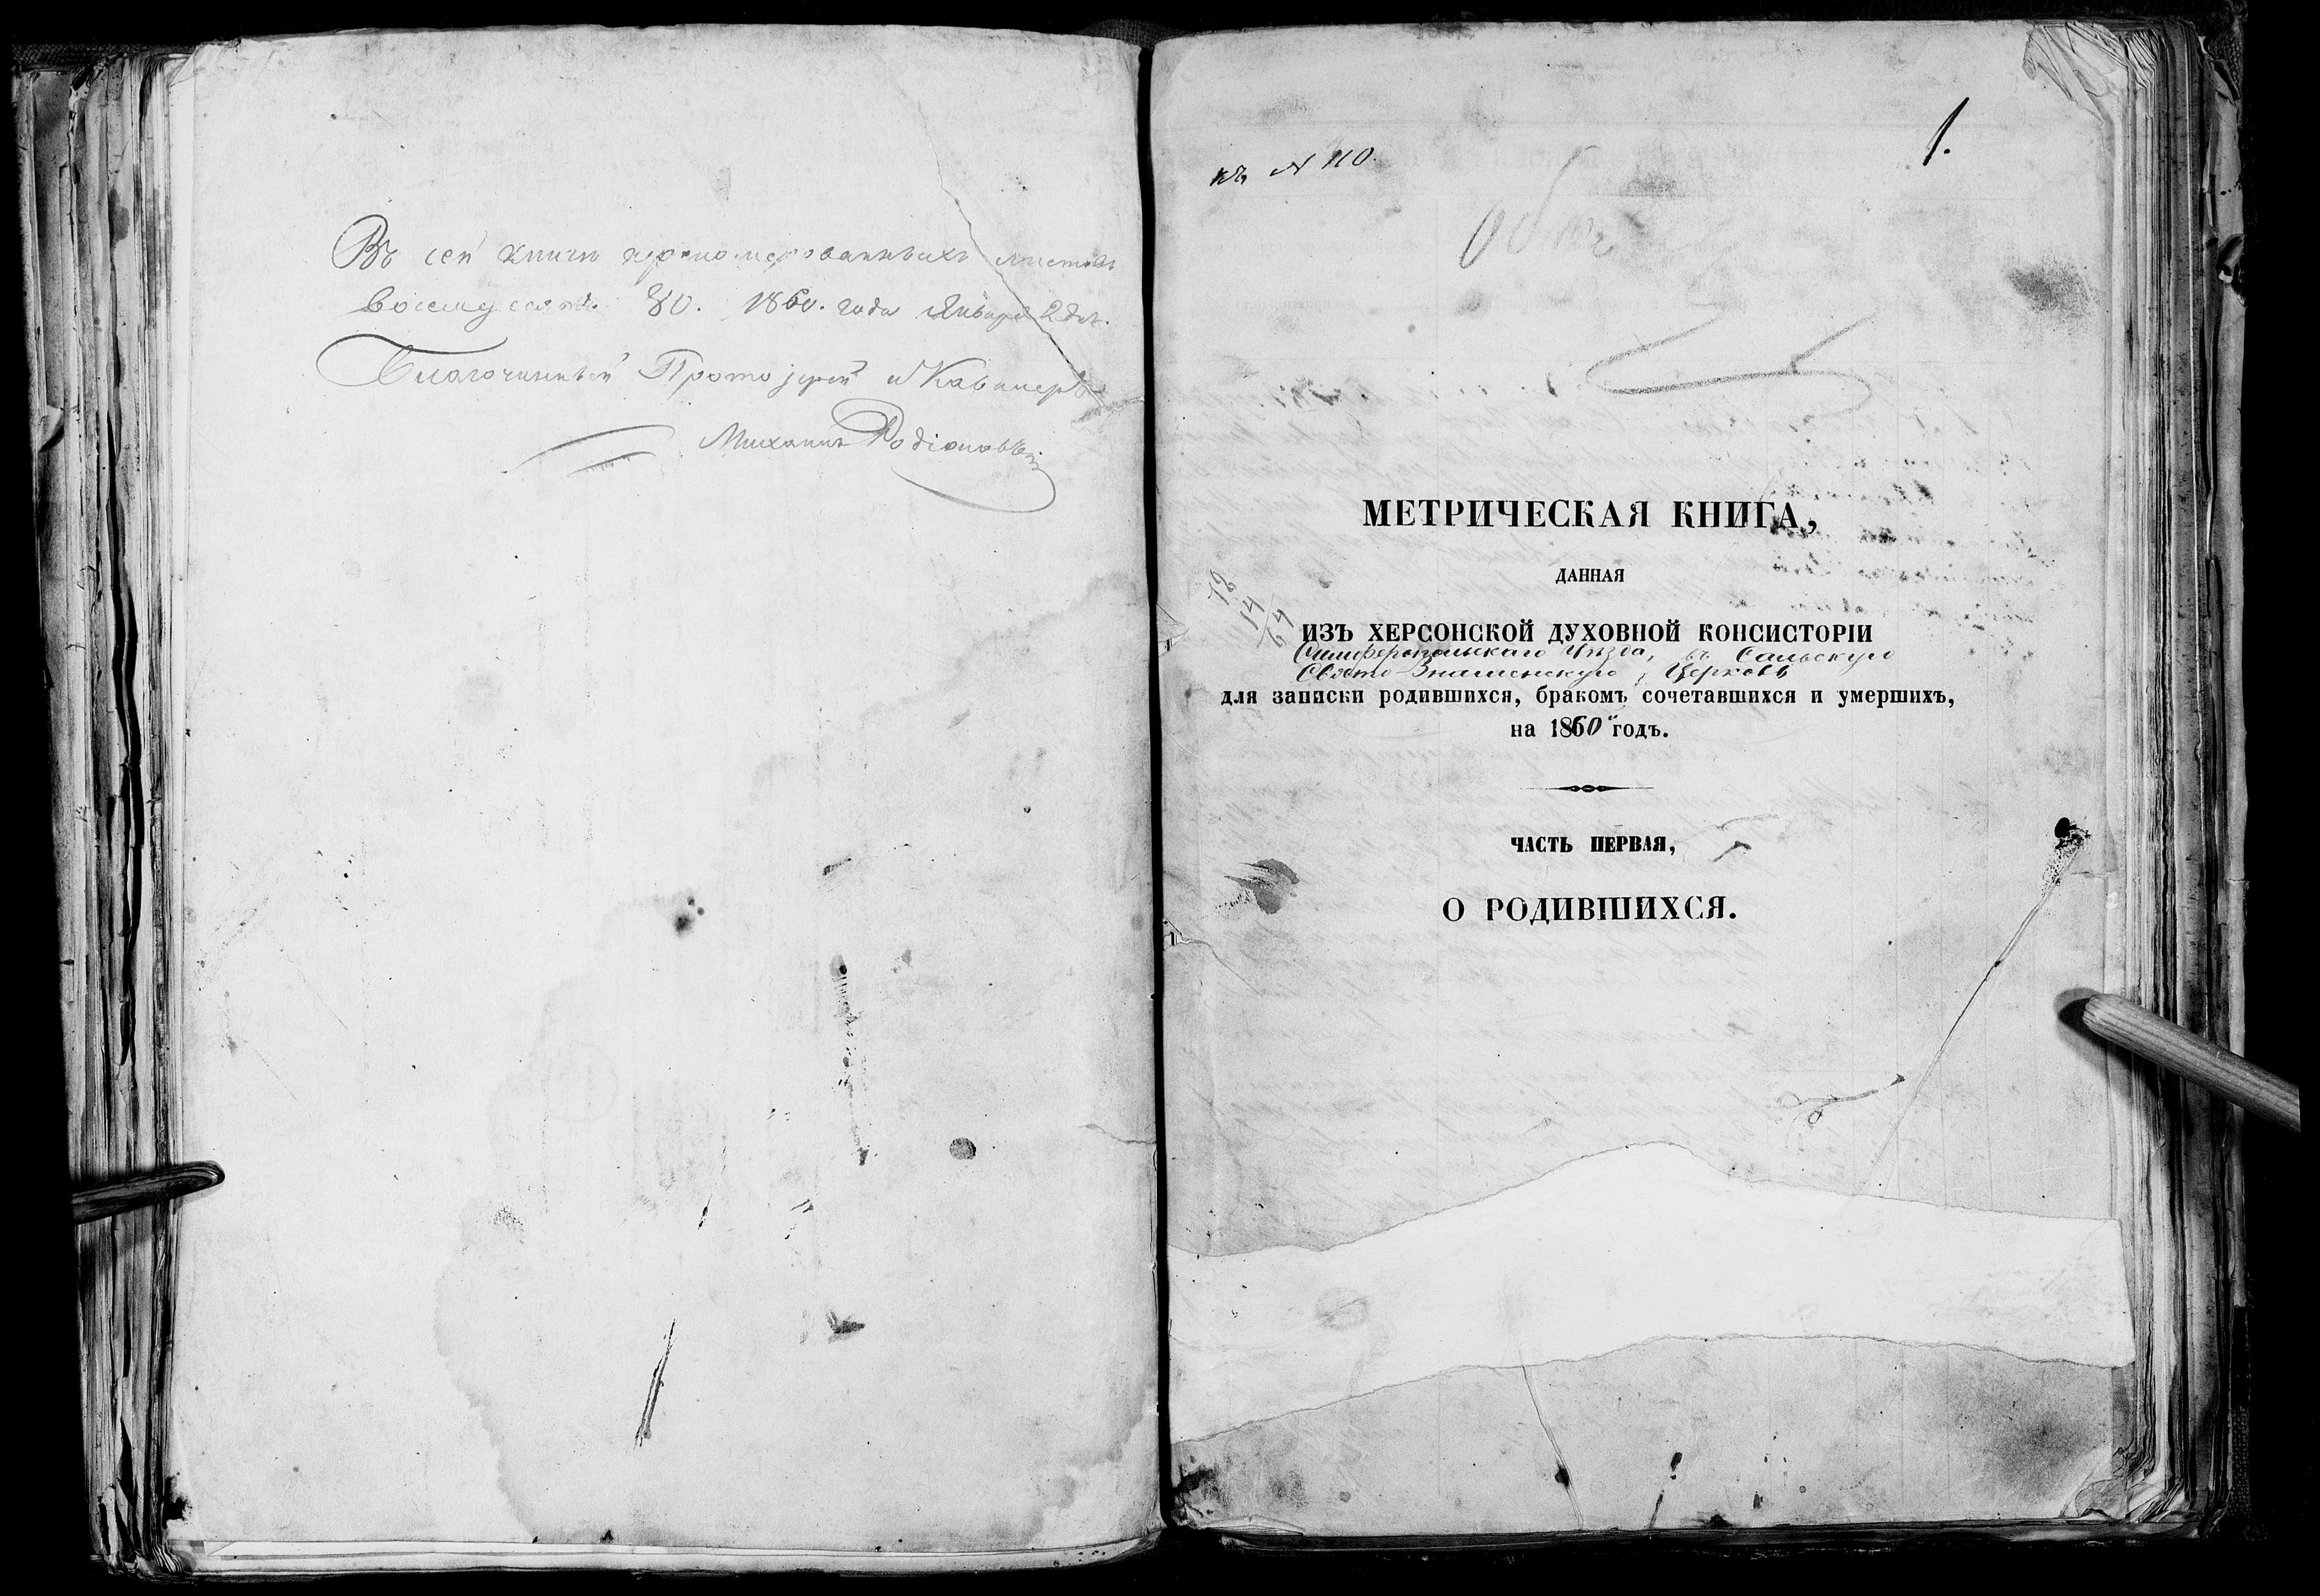 Въ сей книги пронумерованныхъ листовъ
восемдесятъ 80. 1860. года Января 2 дня.
Благочинный Протоіерей и Кавалеръ
Михаилъ Родіоновъ
1.
къ № 110.
18
14
64
МЕТРИЧЕСКАЯ КНИГА,
ДАННАЯ
ИЗЪ ХЕРСОНСКОЙ ДУХОВНОЙ КОНСИСТОРІИ
Симферопольскаго Уѣзда, въ Сальскую
Свято-Знаменскую, Церковь
для записки родившихся, бракомъ сочетавшихся и умершихъ,
на 1860 годъ.
ЧАСТЬ ПЕРВАЯ,
О РОДИВШИХСЯ.